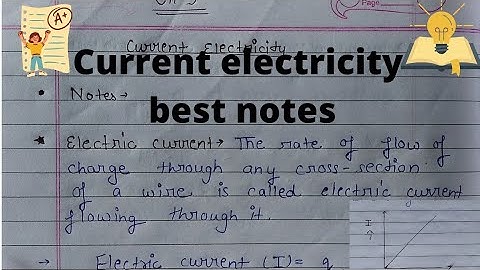 A+
Page
Current Electricity
Current electricity
best notes
• Notes→
★ Electric current→ The rate of flow of
charge through any cross-section
of a wire is called electric current
flowing through it.
I
↑
→ Electric current (I) = q